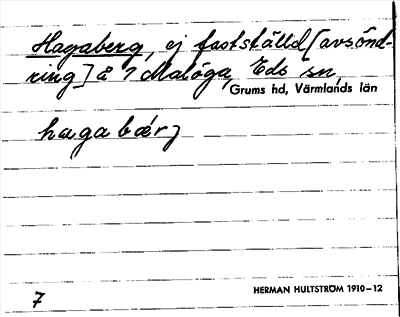 Hagaberg, ej fastställd [avsönd-
ring] å 7 Malöga, Eds sn,
Grums hd, Värmlands län
hagabærj
7
HERMAN HULTSTRÖM 1910–12